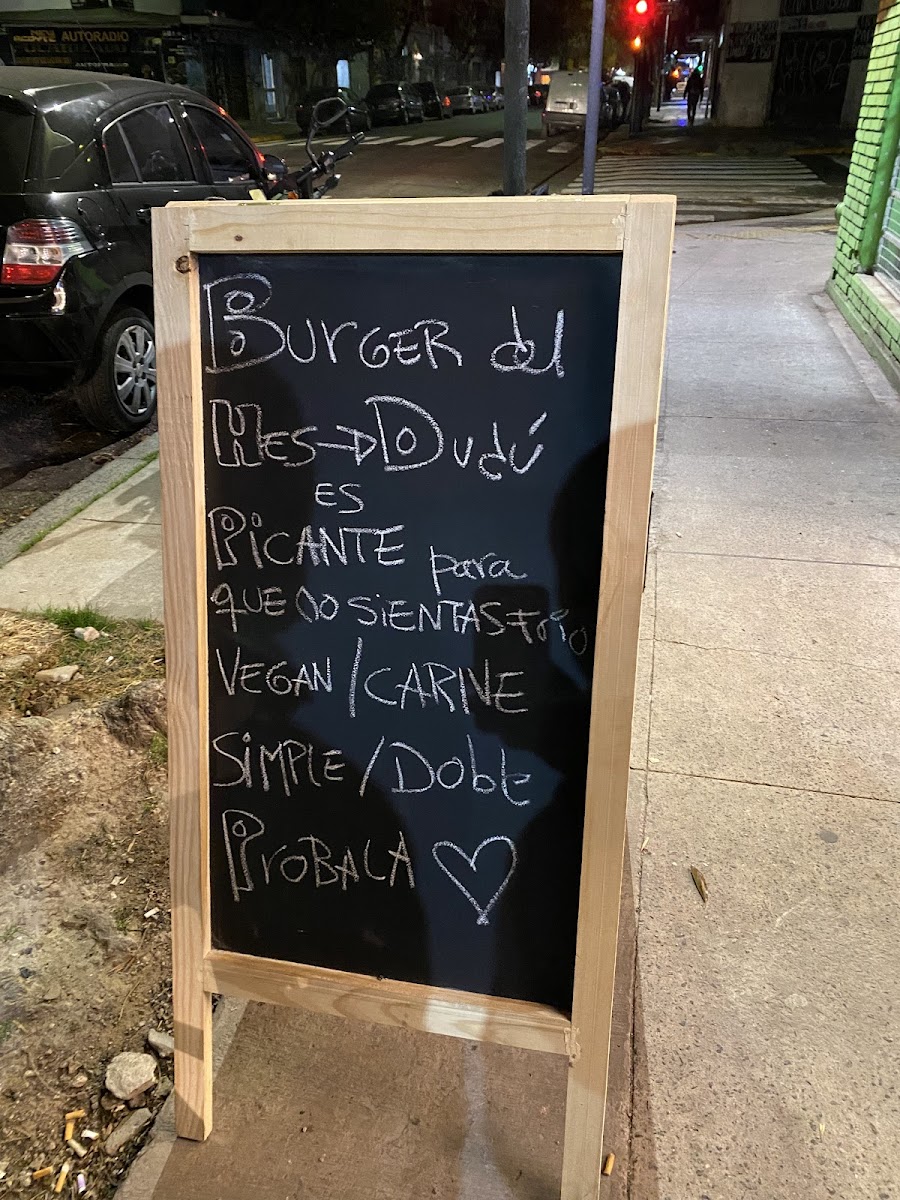 AUTORADIO
Burger del
Mes → Dudú
es
Picante para
que no sientas frio
Vegan / Carne
Simple / Doble
Probala ♡